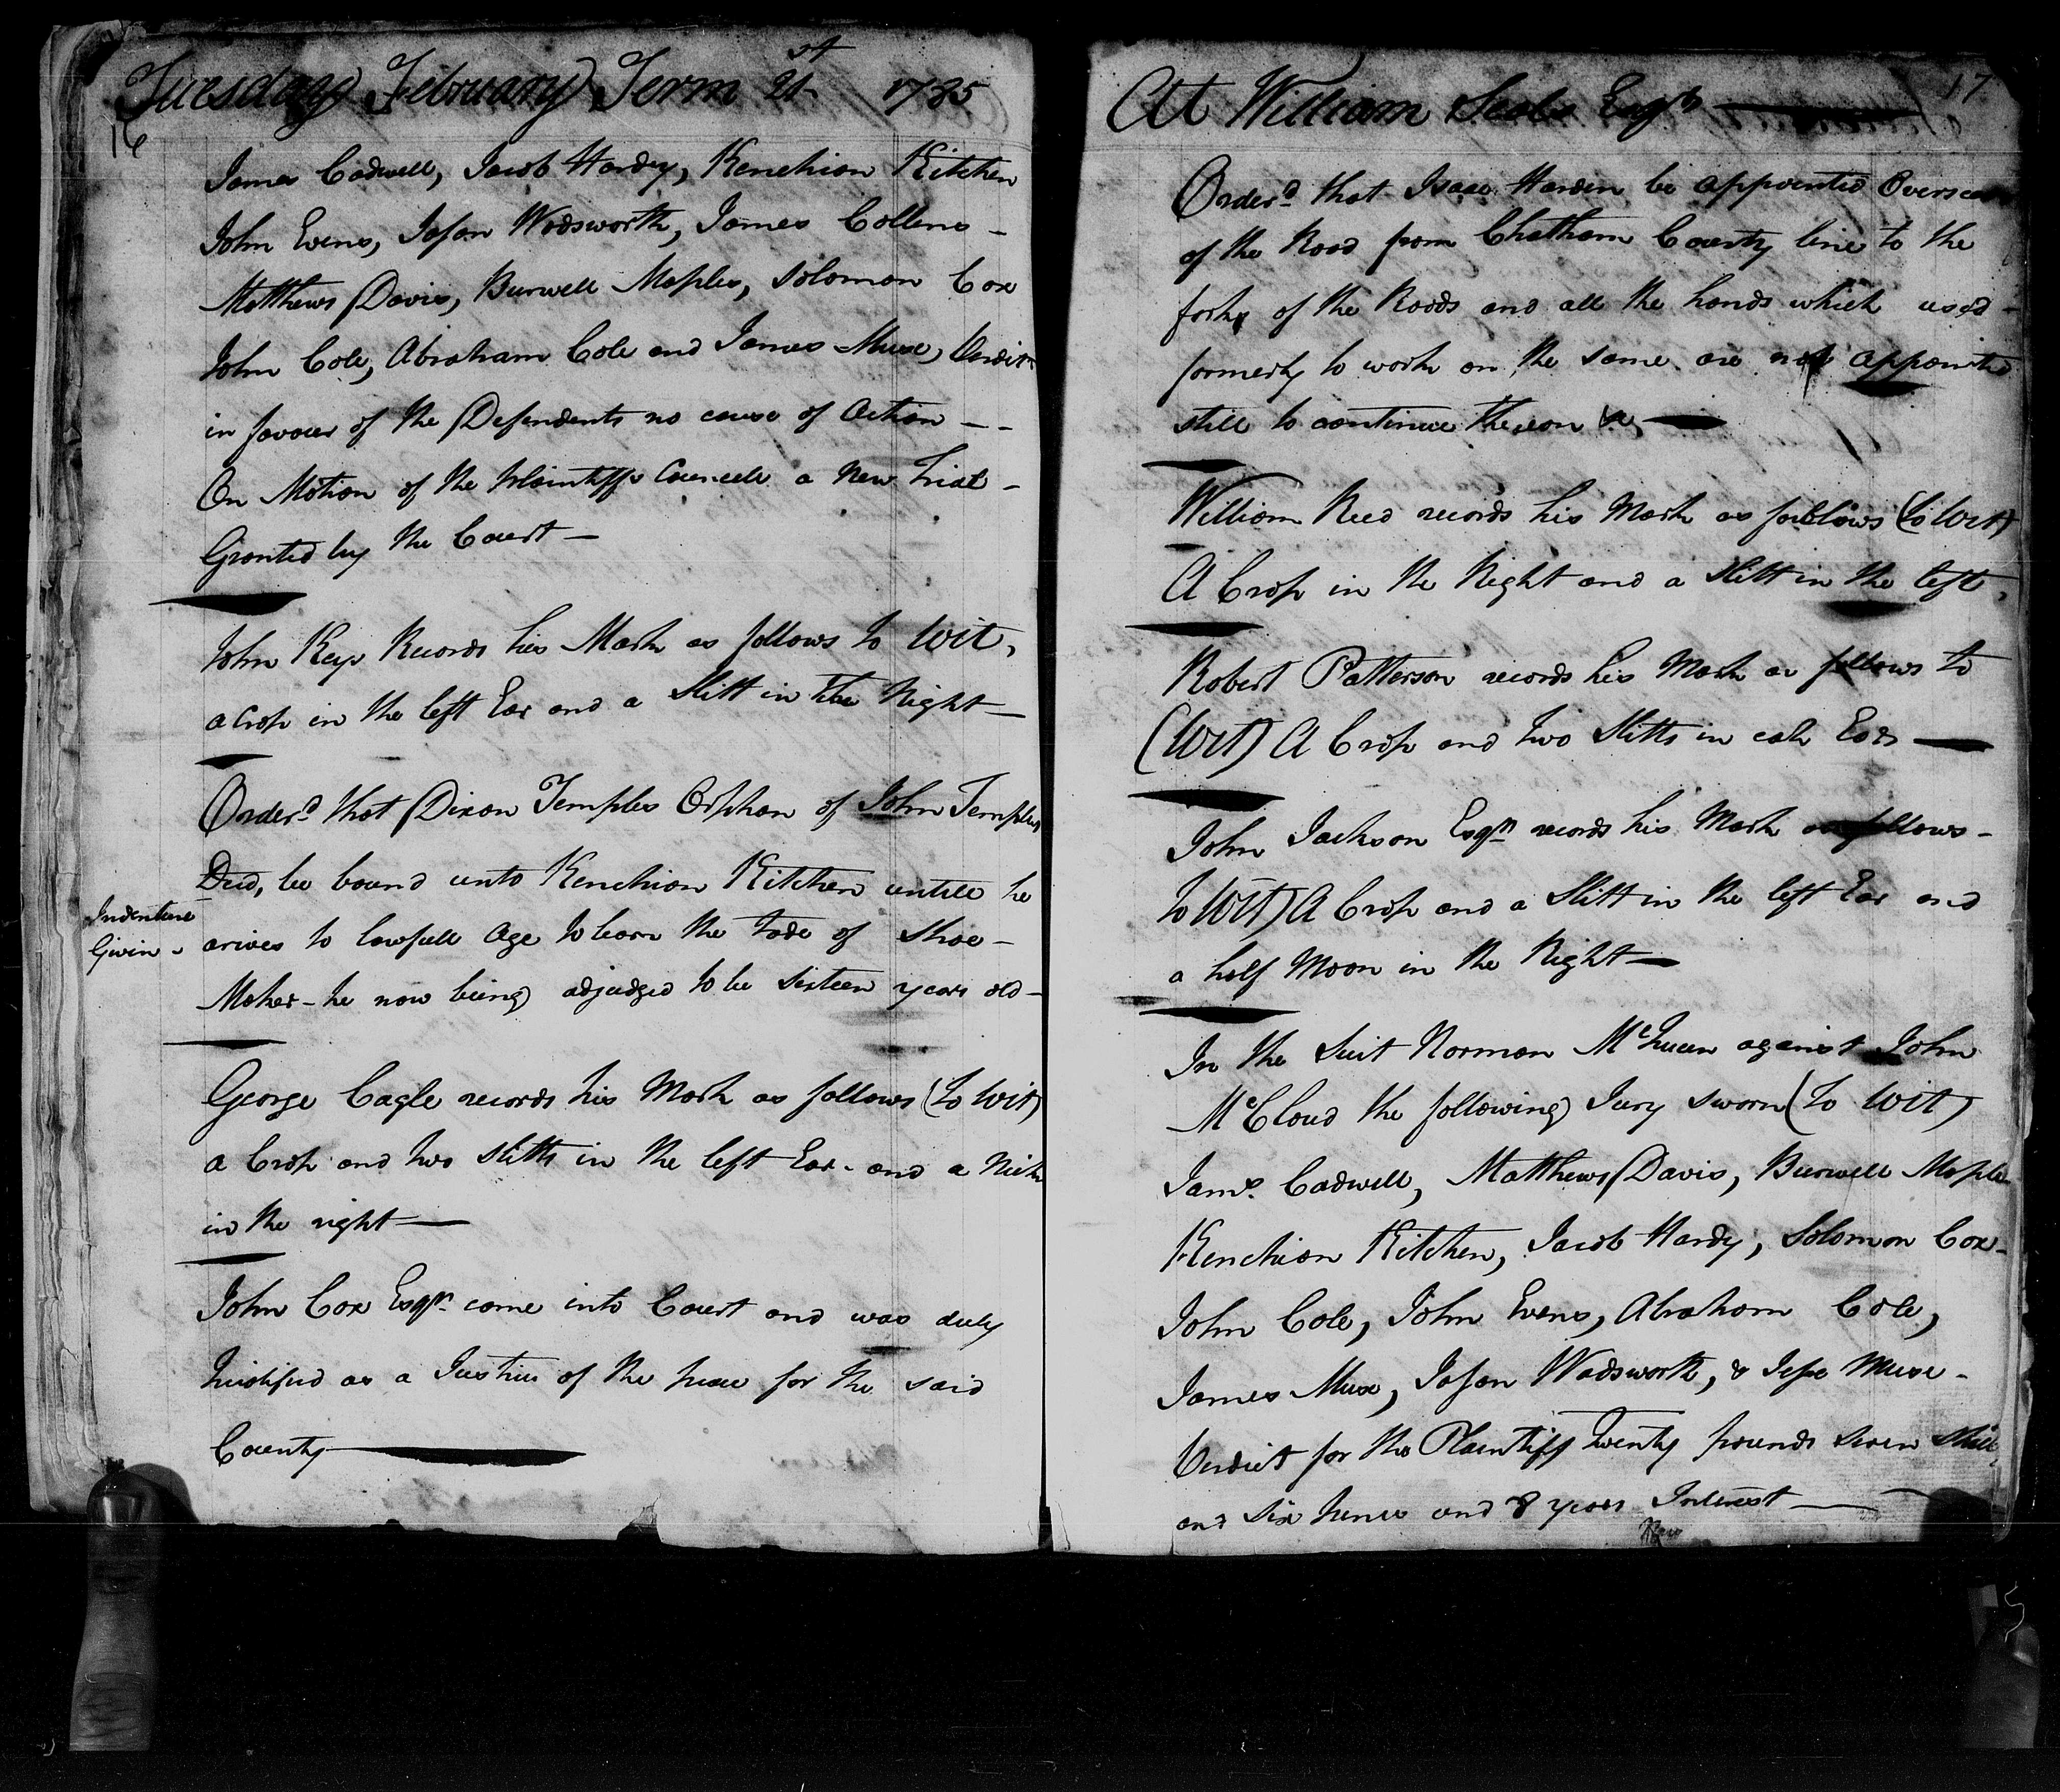 Tuesday February Term 21st 1785
16
James Cadwell, Jacob Hardy, Kenchion Kitchen
John Evens, Jason Wodsworth, James Collens -
Matthews Davis, Burwell Maples, Solomon Cox
John Cole, Abraham Cole and James Muse, Verdict
in favour of the Defendents no cause of Action - -
On Motion of the Plaintiffs Councell a New Trial -
Granted by the Court -
John Key Records his Mark as follows to Wit,
a Crop in the left Ear and a Slitt in the Right -
Orderd that Dixon Temples Orphan of John Temples
Decd, be bound unto Kenchion Kitchen untill he
Indenture
Givin -
arives to lawfull Age to learn the Tade of Shoe -
Maker - he now being adjudged to be Sixteen years old -
George Cagle records his Mark as follows (to Wit)
a Crop and two Slitts in the left Ear - and a Nick
in the right -
John Cox Esqr. came into Court and was duly
as a Justice of the peace for the said
County
17
At William Seals Esqrs
Orderd that Isaac Harden be appointed Overseer
of the Road from Chatham County line to the
forks of the Roads and all the hands which used -
formerly to work on the same are not appointed
still to continue thereon &c
William Reed records his Mark as follows (to Wit)
A Crop in the Right and a Slitt in the left,
Robert Patterson records his Mark as follows to
(Wit) A Crop and two Slitts in eah Ears
John Jackson Esqr records his Mark as follows -
to Wit) A Crop and a Slitt in the left Ear and
a half Moon in the Right -
In the Suit Norman McQueen against John
McCloud the following Jury sworn (to Wit)
Jams. Cadwell, Matthews Davis, Burwell Maples
Kenchion Kitchen, Jacob Hardy, Solomon Cox -
John Cole, John Evens, Abraham Cole,
James Muse, Jason Wadsworth, & Jesse Muse -
Verdict for the Plaintiff Twenty pounds Seven Shill
and Six pence and 8 years Interest